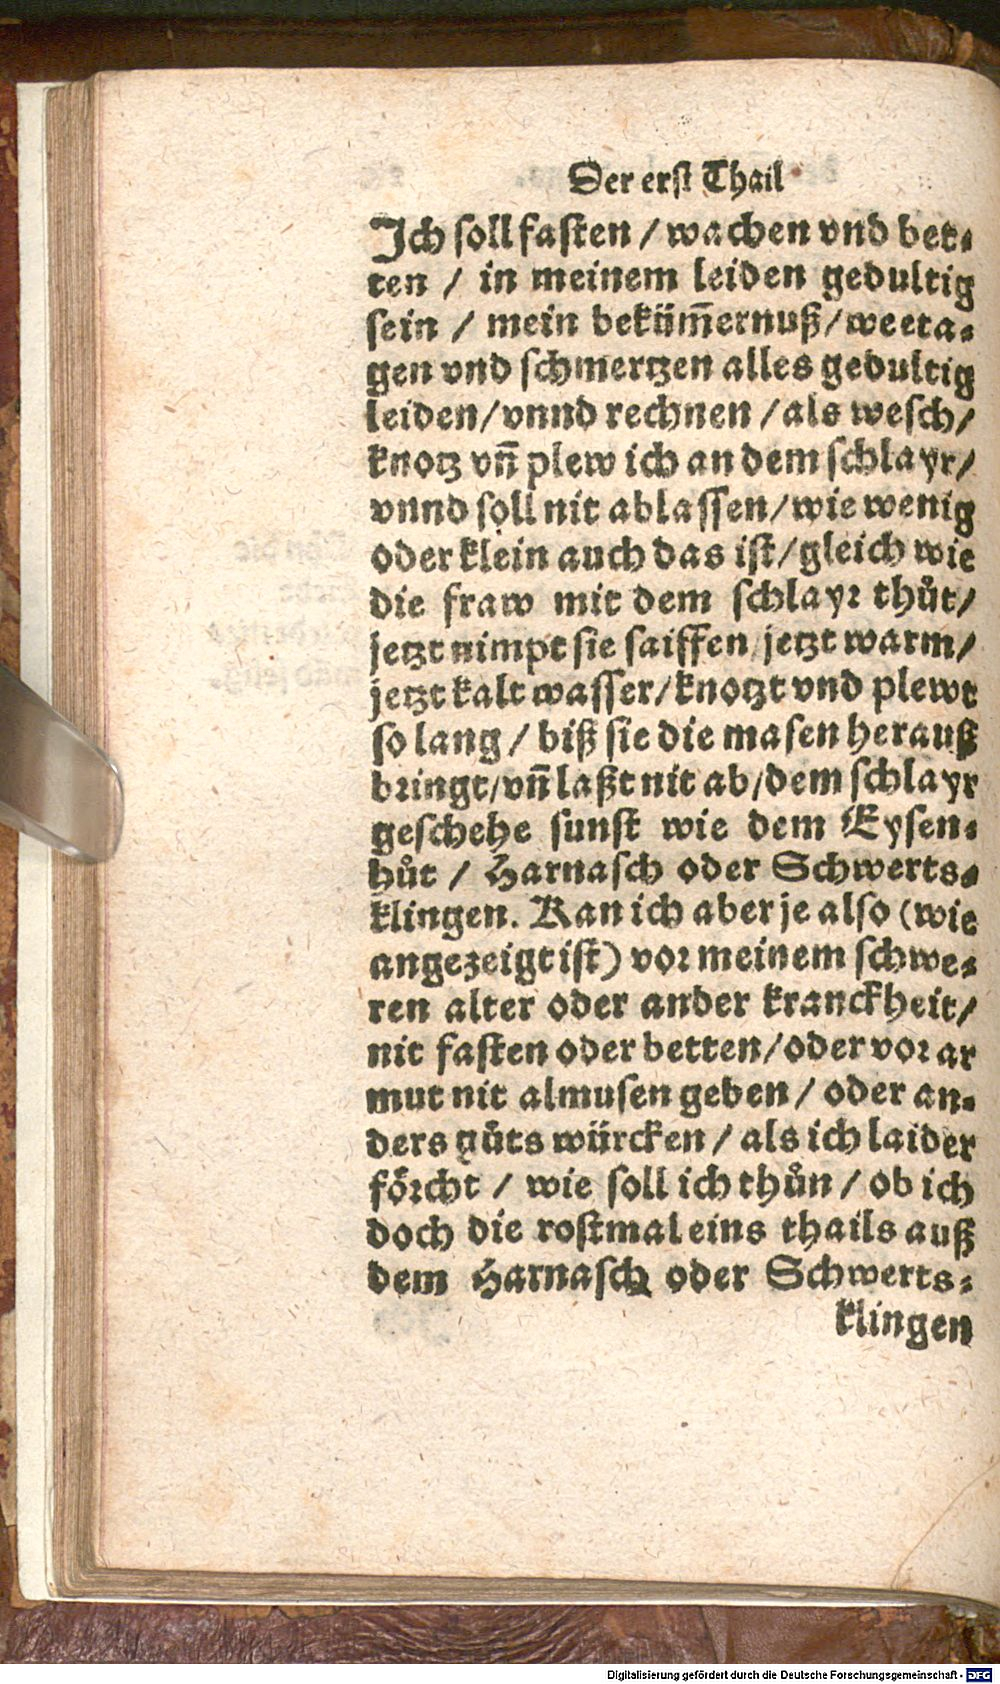 Der erst Thail
Ich soll fasten / wachen vnd bet⸗
ten / in meinem leiden gedultig
sein / mein beküm̃ernuß / weeta⸗
gen vnd schmertzen alles gedultig
leiden / vnnd rechnen / als wesch /
knotz vñ plew ich an dem schlayr /
vnnd soll nit ablassen / wie wenig
oder klein auch das ist / gleich wie
die fraw mit dem schlayr thůt /
jetzt nimpt sie saiffen / jetzt warm /
jetzt kalt wasser / knotzt vnd plewt
so lang / biß sie die masen herauß
bringt / vñ laßt nit ab / dem schlayr
geschehe sunst wie dem Eysen⸗
hůt / Harnasch oder Schwerts⸗
klingen. Kan ich aber je also (wie
angezeigt ist) vor meinem schwe⸗
ren alter oder ander kranckheit /
nit fasten oder betten / oder vor ar
mut nit almusen geben / oder an⸗
ders gůts würcken / als ich laider
förcht / wie soll ich thůn / ob ich
doch die rostmal eins thails auß
dem Harnasch oder Schwerts⸗
klingen
Digitalisierung gefördert durch die Deutsche Forschungsgemeinschaft - DFG